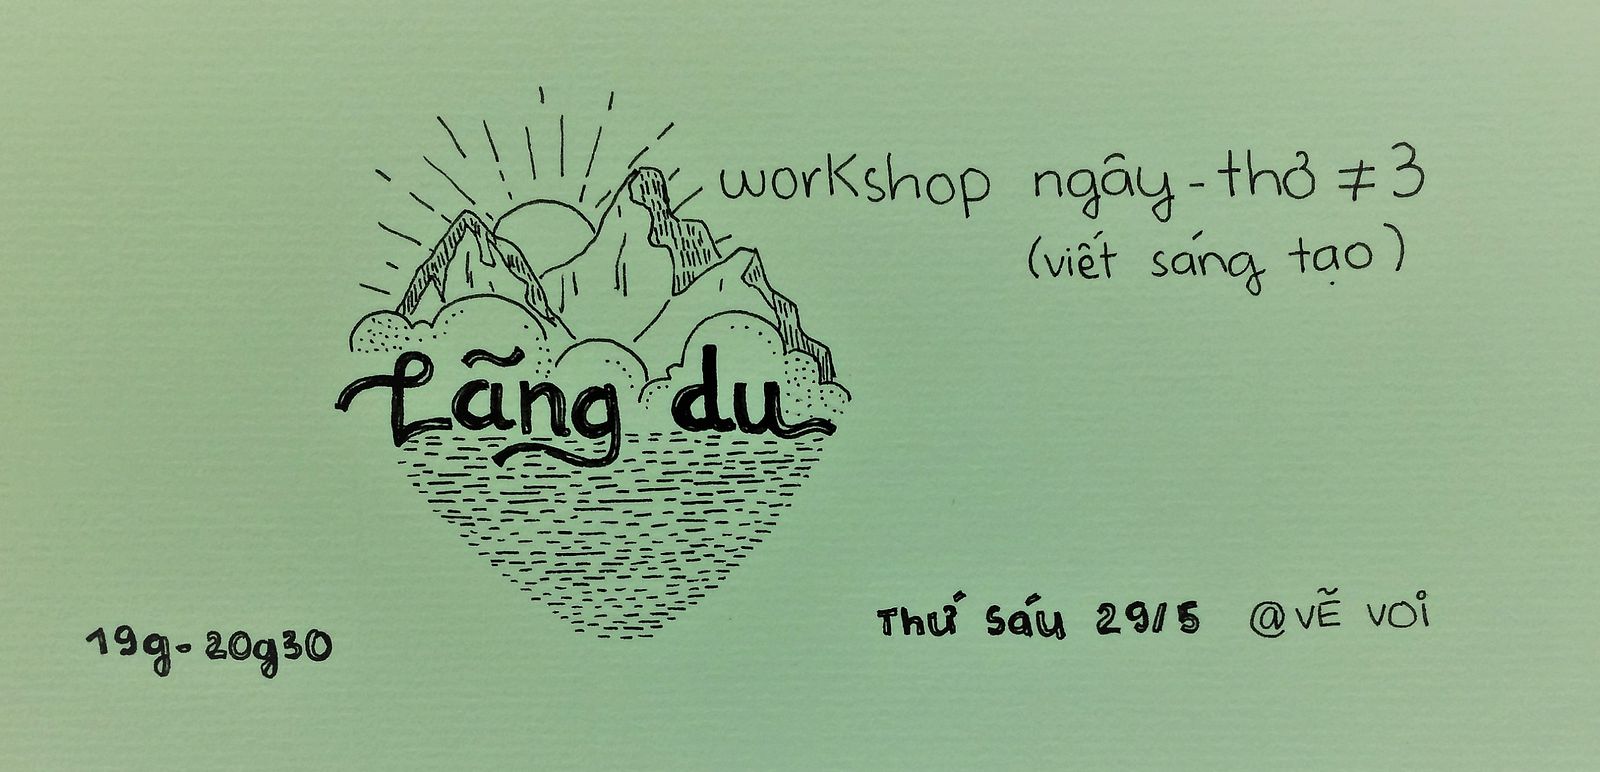 workshop ngây-thơ ≠ 3
(viết sáng tạo)
Lãng du
Thứ Sáu 29/5 @VẼ VOI
19g-20g30